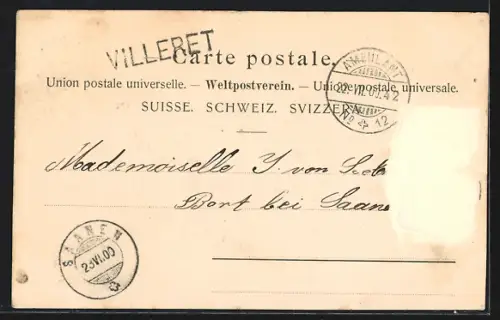 VILLERET
Carte postale.
AMBULANT
22. VI. 00. 42
No 12
Union postale universelle. — Weltpostverein. — Unione postale universale.
SUISSE. SCHWEIZ. SVIZZERA
Mademoiselle von
Bort bei Saane
SAANEN
23 VI. 00